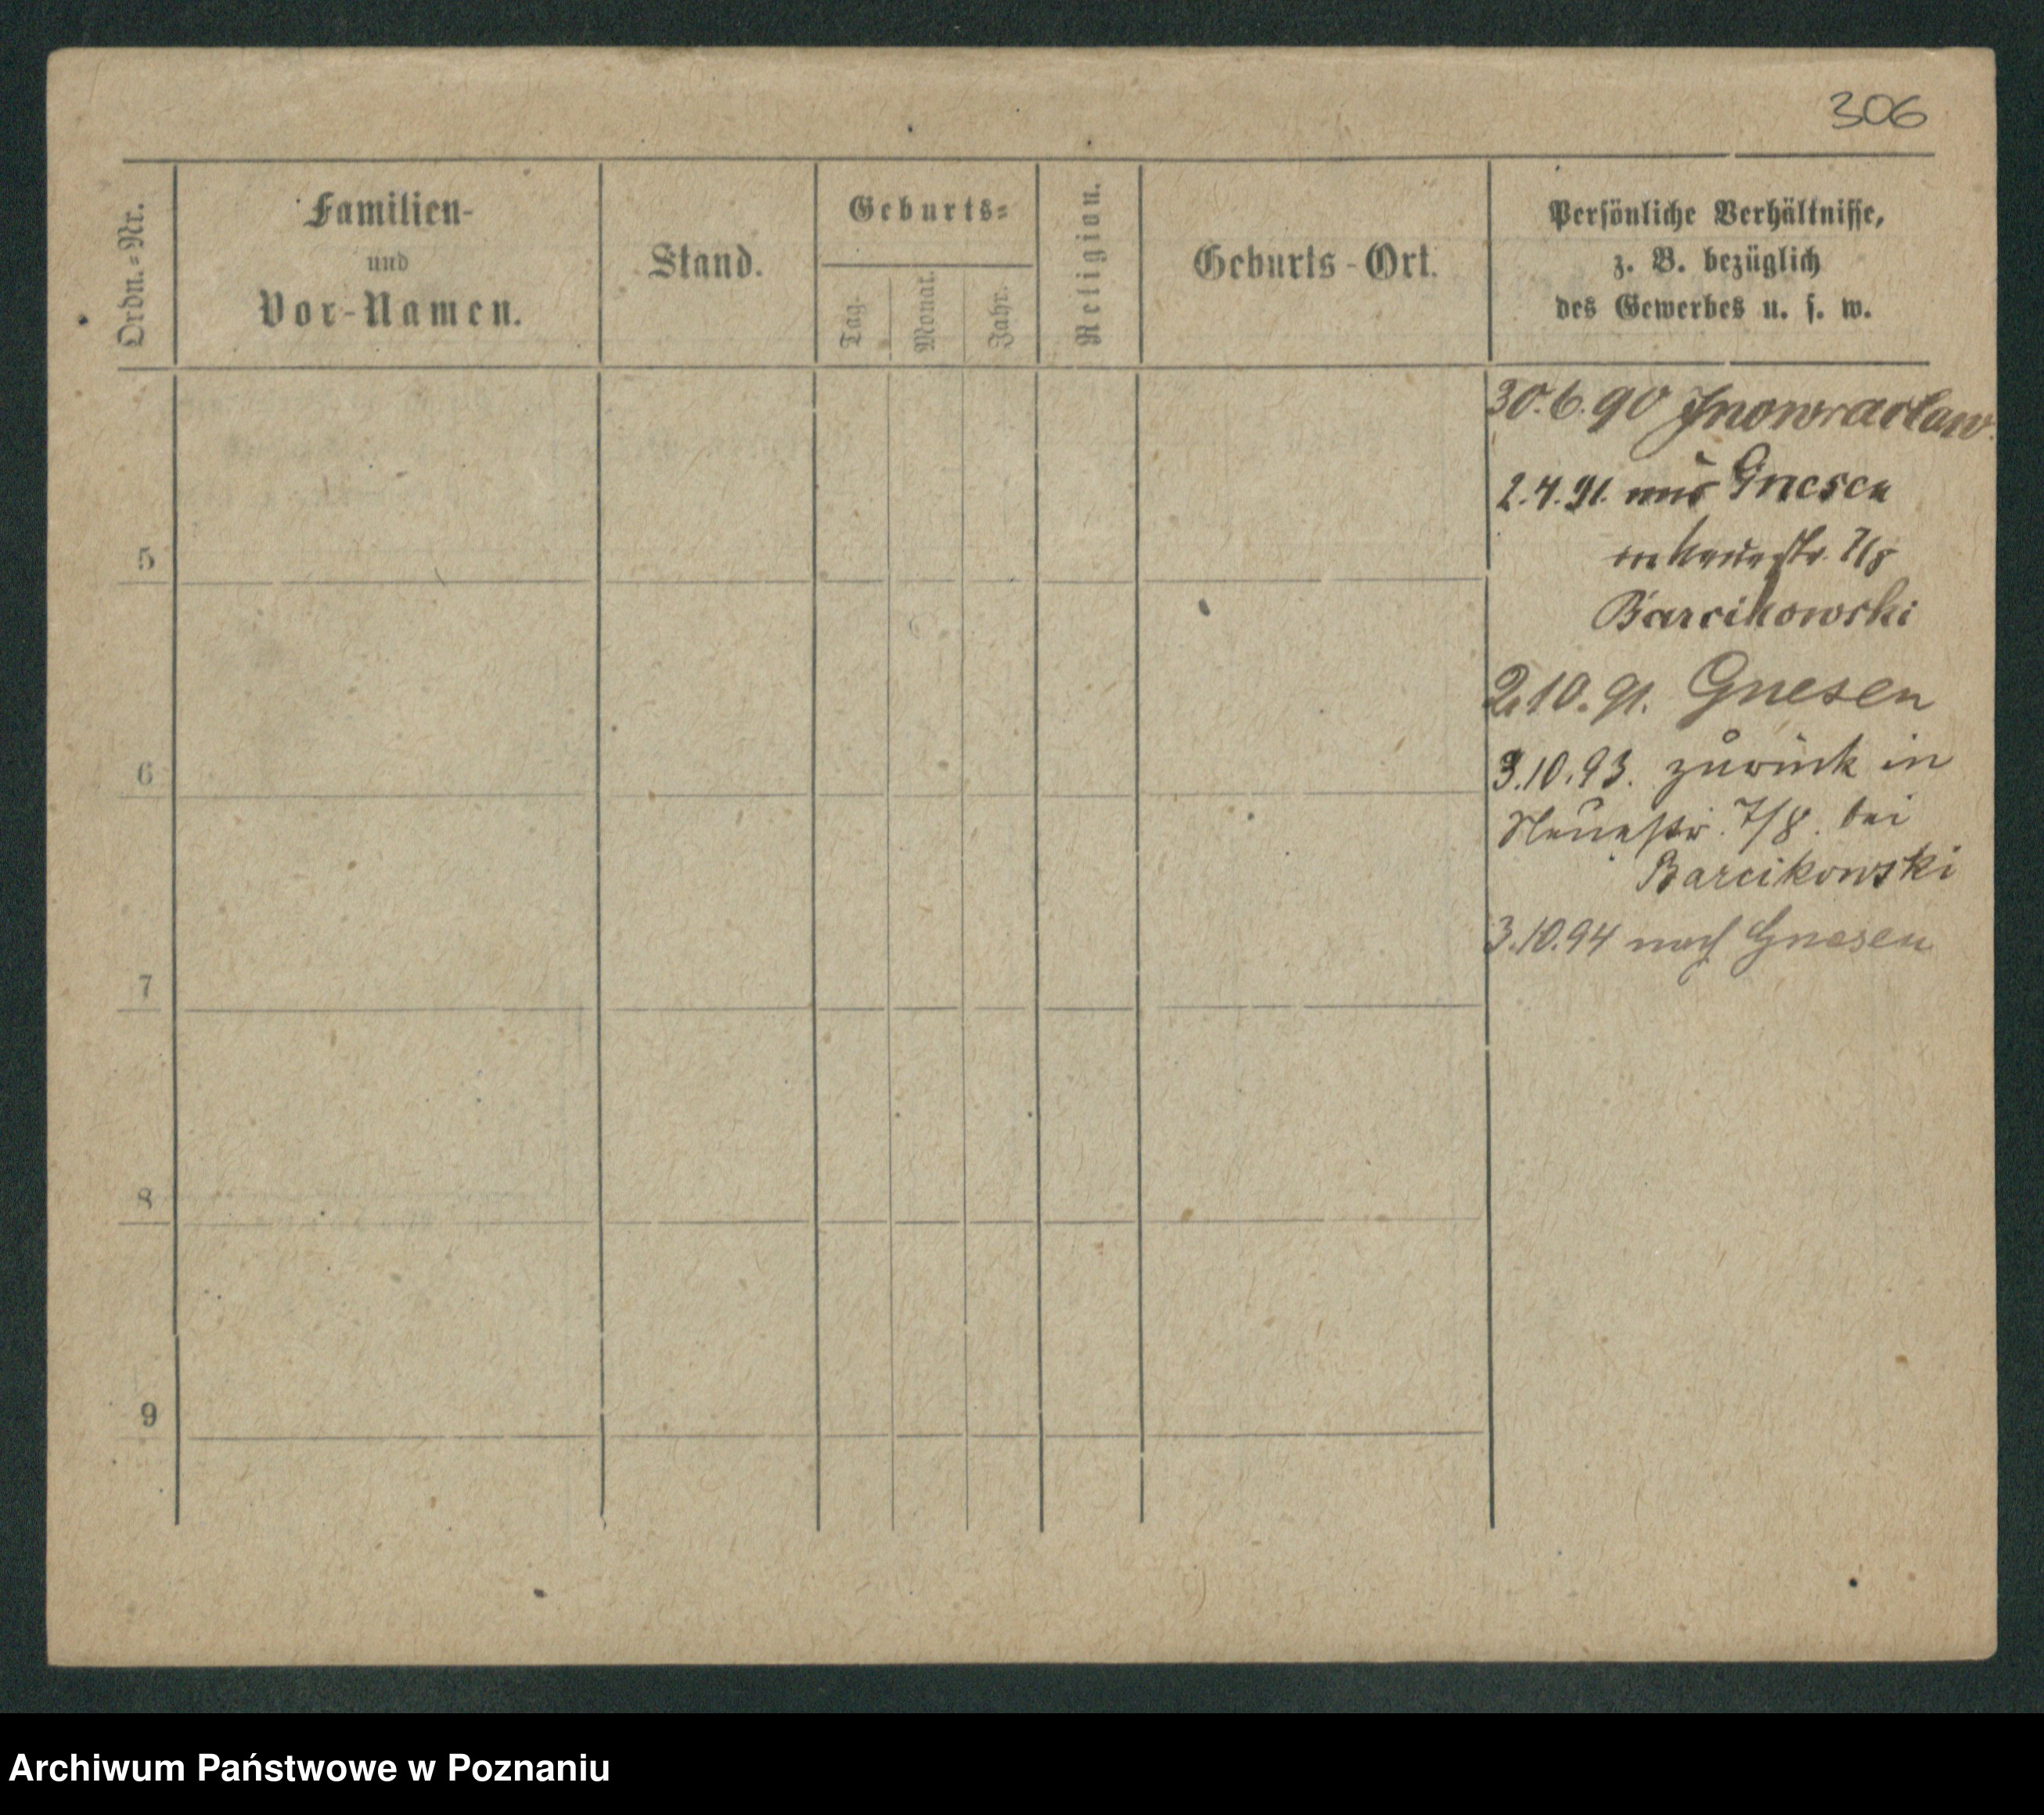 306
Ordn.=Nr.
Familien-
und
Vor-Namen.
Stand.
Geburts=
Tag.
Monat.
Jahr.
Religion.
Geburts-Ort.
Persönliche Verhältnisse,
z. B. bezüglich
des Gewerbes u. s. w.
30.6.90 Inowraclaw.
2.4.91. aus Gnesen
Neuestr. 7/8
Barcikowski
2.10.91. Gnesen
3.10.93. zurück in
Neuestr. 7/8. bei
Barcikowski
3.10.94 nach Gnesen
5
6
7
8
9
Archiwum Państwowe w Poznaniu